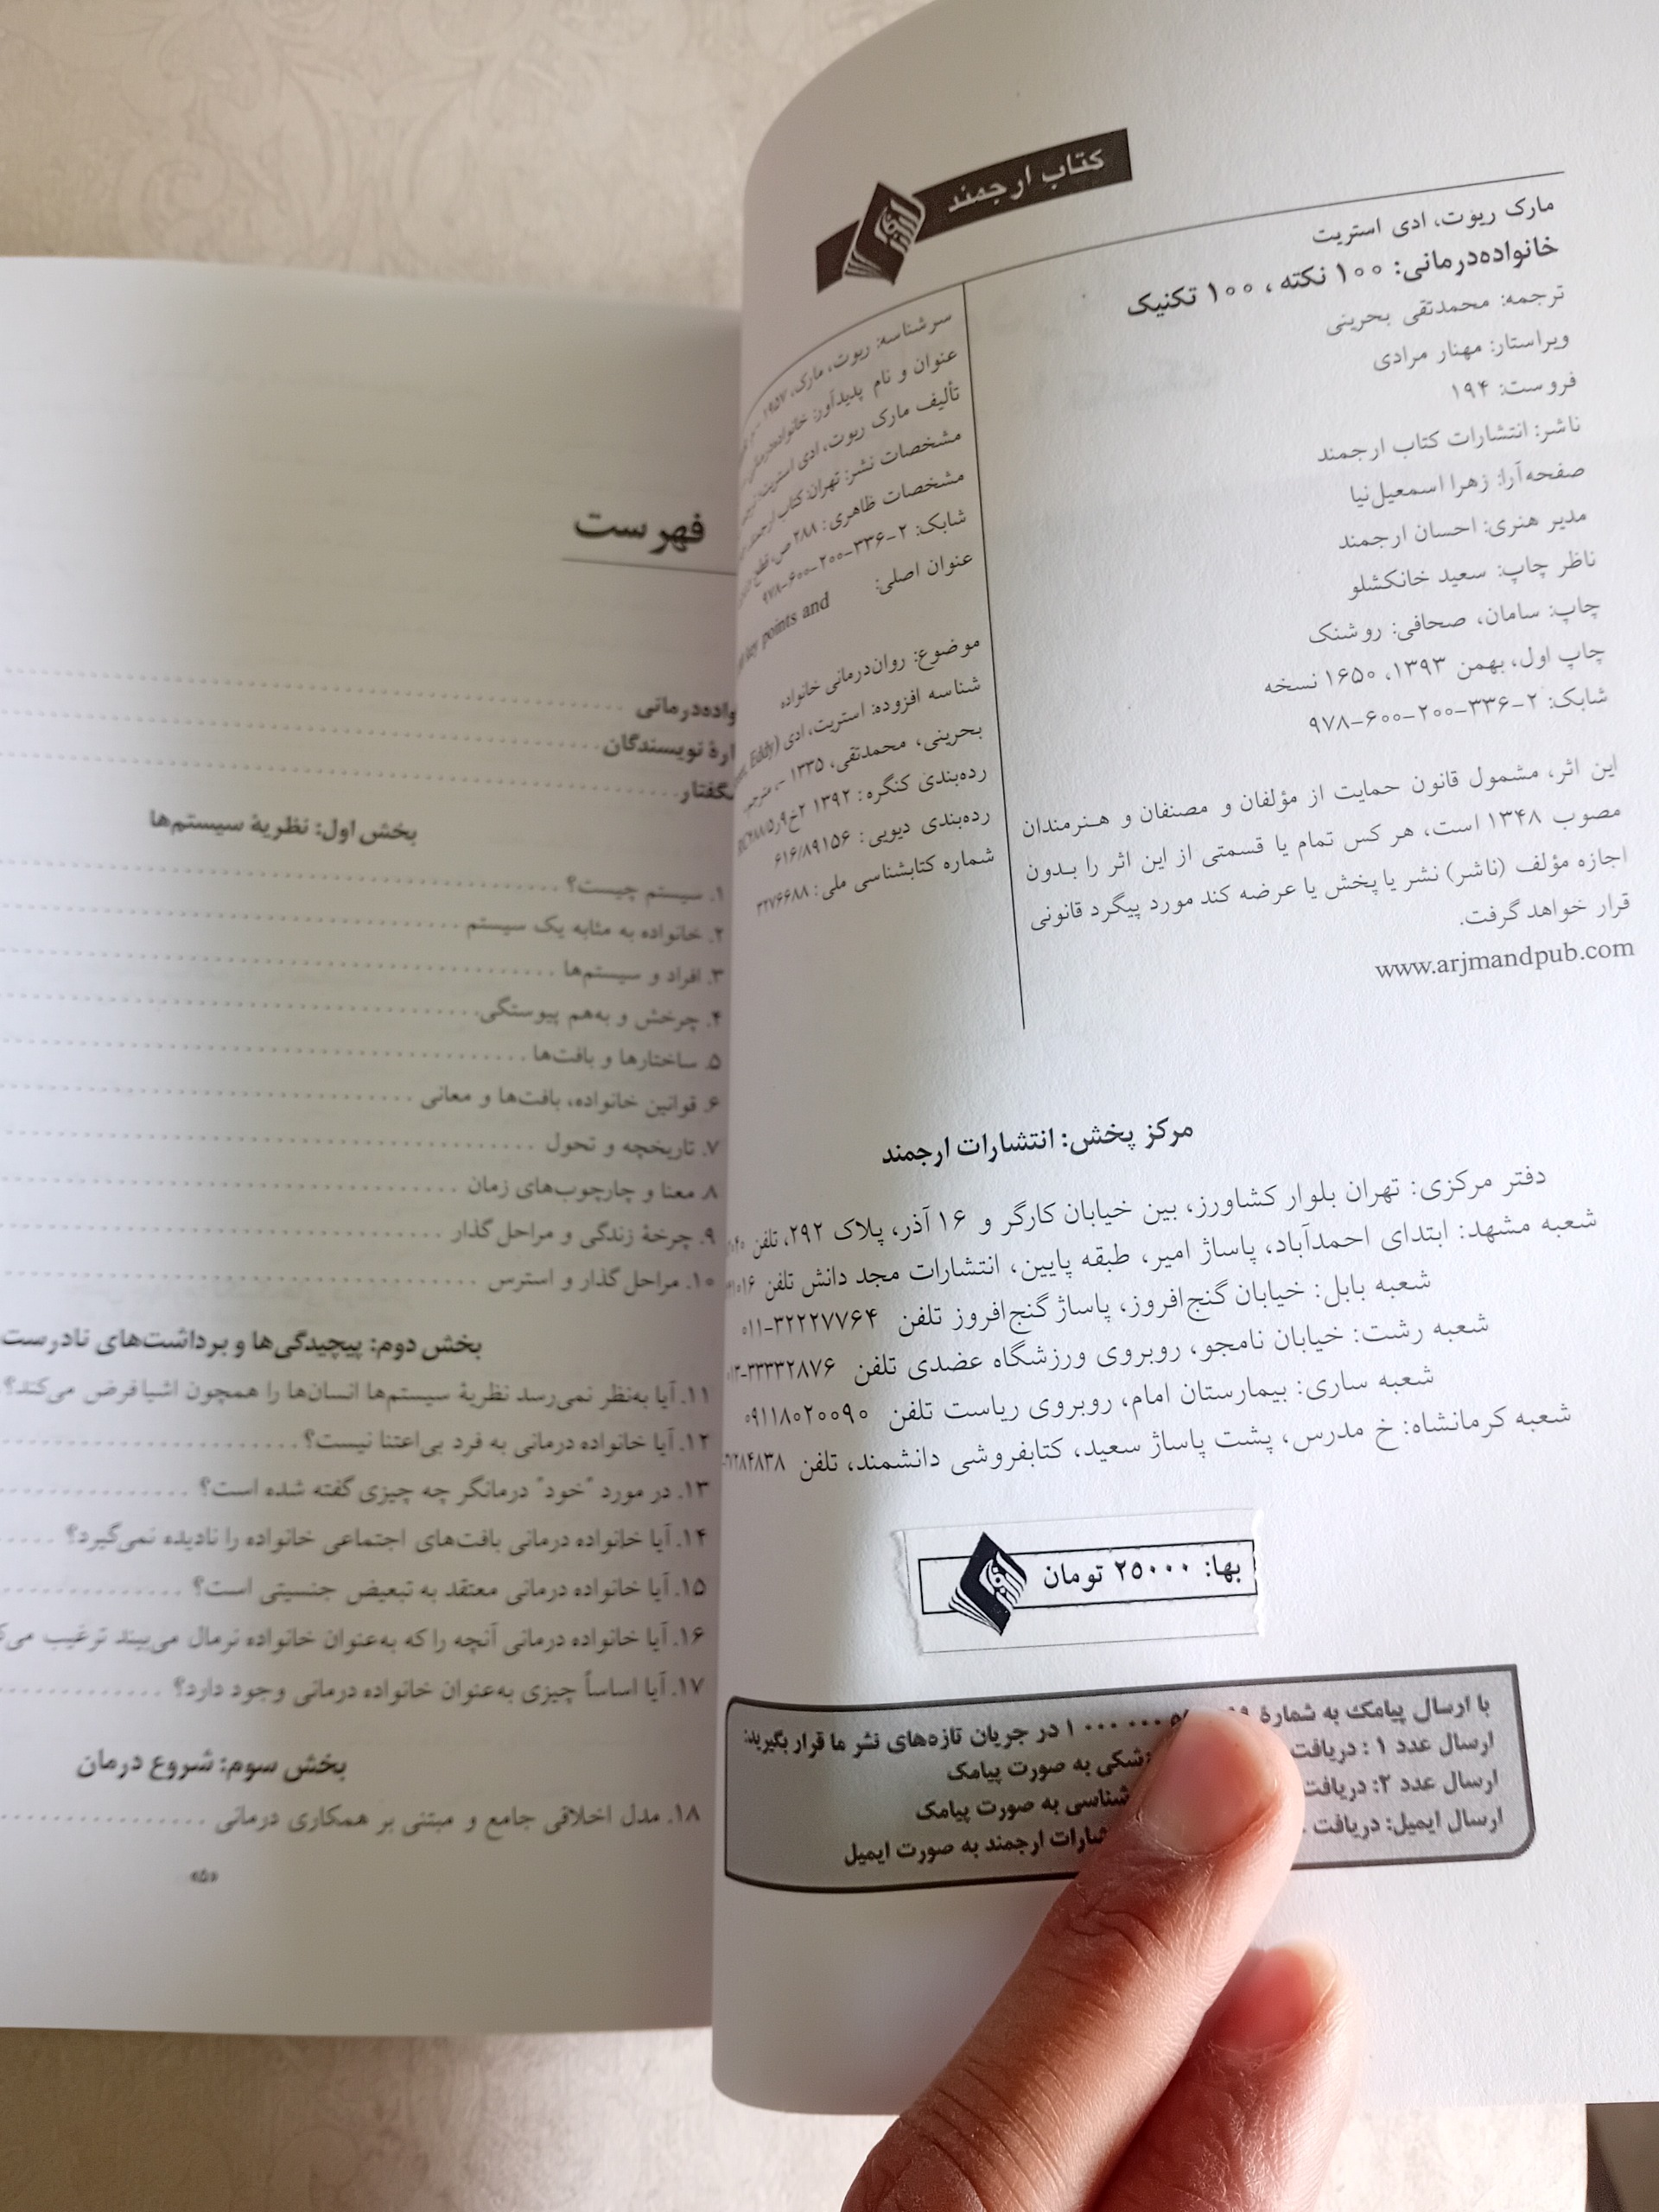 کتاب ارجمند
مارک ریوٰت، ادی استریت
خانواده‌درمانی: ۱۰۰ نکته، ۱۰۰ تکنیک
ترجمه: محمدتقی بحرینی
ویراستار: مهناز مرادی
فروست: ۱۹۴
ناشر: انتشارات کتاب ارجمند
صفحه‌آرا: زهرا اسمعیل‌نیا
مدیر هنری: احسان ارجمند
ناظر چاپ: سعید خانکشلو
چاپ: سامان، صحافی: روشنک
چاپ اول، بهمن ۱۳۹۳، ۱۶۵۰ نسخه
شابک: ۲-۳۳۶-۲۰۰-۶۰۰-۹۷۸
این اثر، مشمول قانون حمایت از مؤلفان و مصنفان و هنرمندان
مصوب ۱۳۴۸ است، هر کس تمام یا قسمتی از این اثر را بدون
اجازه مؤلف (ناشر) نشر یا پخش یا عرضه کند مورد پیگرد قانونی
قرار خواهد گرفت.
www.arjmandpub.com
سرشناسه: ریوت، مارک، ۱۹۵۷
عنوان و نام پدیدآور: خانواده‌درمانی
تألیف مارک ریوت، ادی استریت
مشخصات نشر: تهران: کتاب ارجمند
مشخصات ظاهری: ۲۸۸ ص، قطع
شابک: ۲-۳۳۶-۲۰۰-۶۰۰-۹۷۸
عنوان اصلی:
key points and
موضوع: روان‌درمانی خانواده
شناسه افزوده: استریت، ادی (Eddy
بحرینی، محمدتقی، ۱۳۳۵ -، مترجم
رده‌بندی کنگره: ۱۳۹۲ ۲خ۹ر/RC۴۸۸/۵
رده‌بندی دیویی: ۶۱۶/۸۹۱۵۶
شماره کتابشناسی ملی: ۳۲۷۶۶۸۸
مرکز پخش: انتشارات ارجمند
دفتر مرکزی: تهران بلوار کشاورز، بین خیابان کارگر و ۱۶ آذر، پلاک ۲۹۲، تلفن
شعبه مشهد: ابتدای احمدآباد، پاساژ امیر، طبقه پایین، انتشارات مجد دانش تلفن
شعبه بابل: خیابان گنج‌افروز، پاساژ گنج‌افروز تلفن ۳۲۲۲۷۷۶۴-۰۱۱
شعبه رشت: خیابان نامجو، روبروی ورزشگاه عضدی تلفن ۳۳۳۳۲۸۷۶-۰۱۳
شعبه ساری: بیمارستان امام، روبروی ریاست تلفن ۰۹۱۱۸۰۲۰۰۹۰
شعبه کرمانشاه: خ مدرس، پشت پاساژ سعید، کتابفروشی دانشمند، تلفن ۷۲۸۴۸۳۸
بها: ۲۵۰۰۰ تومان
با ارسال پیامک به شمارهٔ ۱۰۰۰ در جریان تازه‌های نشر ما قرار بگیرید:
ارسال عدد ۱: دریافت به صورت پیامک
ارسال عدد ۲: دریافت به صورت پیامک
ارسال ایمیل: دریافت ارجمند به صورت ایمیل
فهرست
بخش اول: نظریهٔ سیستم‌ها
۱. سیستم چیست؟
۲. خانواده به مثابه یک سیستم
۳. افراد و سیستم‌ها
۴. چرخش و به‌هم پیوستگی
۵. ساختارها و بافت‌ها
۶. قوانین خانواده، بافت‌ها و معانی
۷. تاریخچه و تحول
۸. معنا و چارچوب‌های زمان
۹. چرخهٔ زندگی و مراحل گذار
۱۰. مراحل گذار و استرس
بخش دوم: پیچیدگی‌ها و برداشت‌های نادرست
۱۱. آیا به‌نظر نمی‌رسد نظریهٔ سیستم‌ها انسان‌ها را همچون اشیا فرض می‌کند؟
۱۲. آیا خانواده درمانی به فرد بی‌اعتنا نیست؟
۱۳. در مورد "خود" درمانگر چه چیزی گفته شده است؟
۱۴. آیا خانواده درمانی بافت‌های اجتماعی خانواده را نادیده نمی‌گیرد؟
۱۵. آیا خانواده درمانی معتقد به تبعیض جنسیتی است؟
۱۶. آیا خانواده درمانی آنچه را که به‌عنوان خانواده نرمال می‌بیند ترغیب
۱۷. آیا اساساً چیزی به‌عنوان خانواده درمانی وجود دارد؟
بخش سوم: شروع درمان
۱۸. مدل اخلاقی جامع و مبتنی بر همکاری درمانی
«۵»